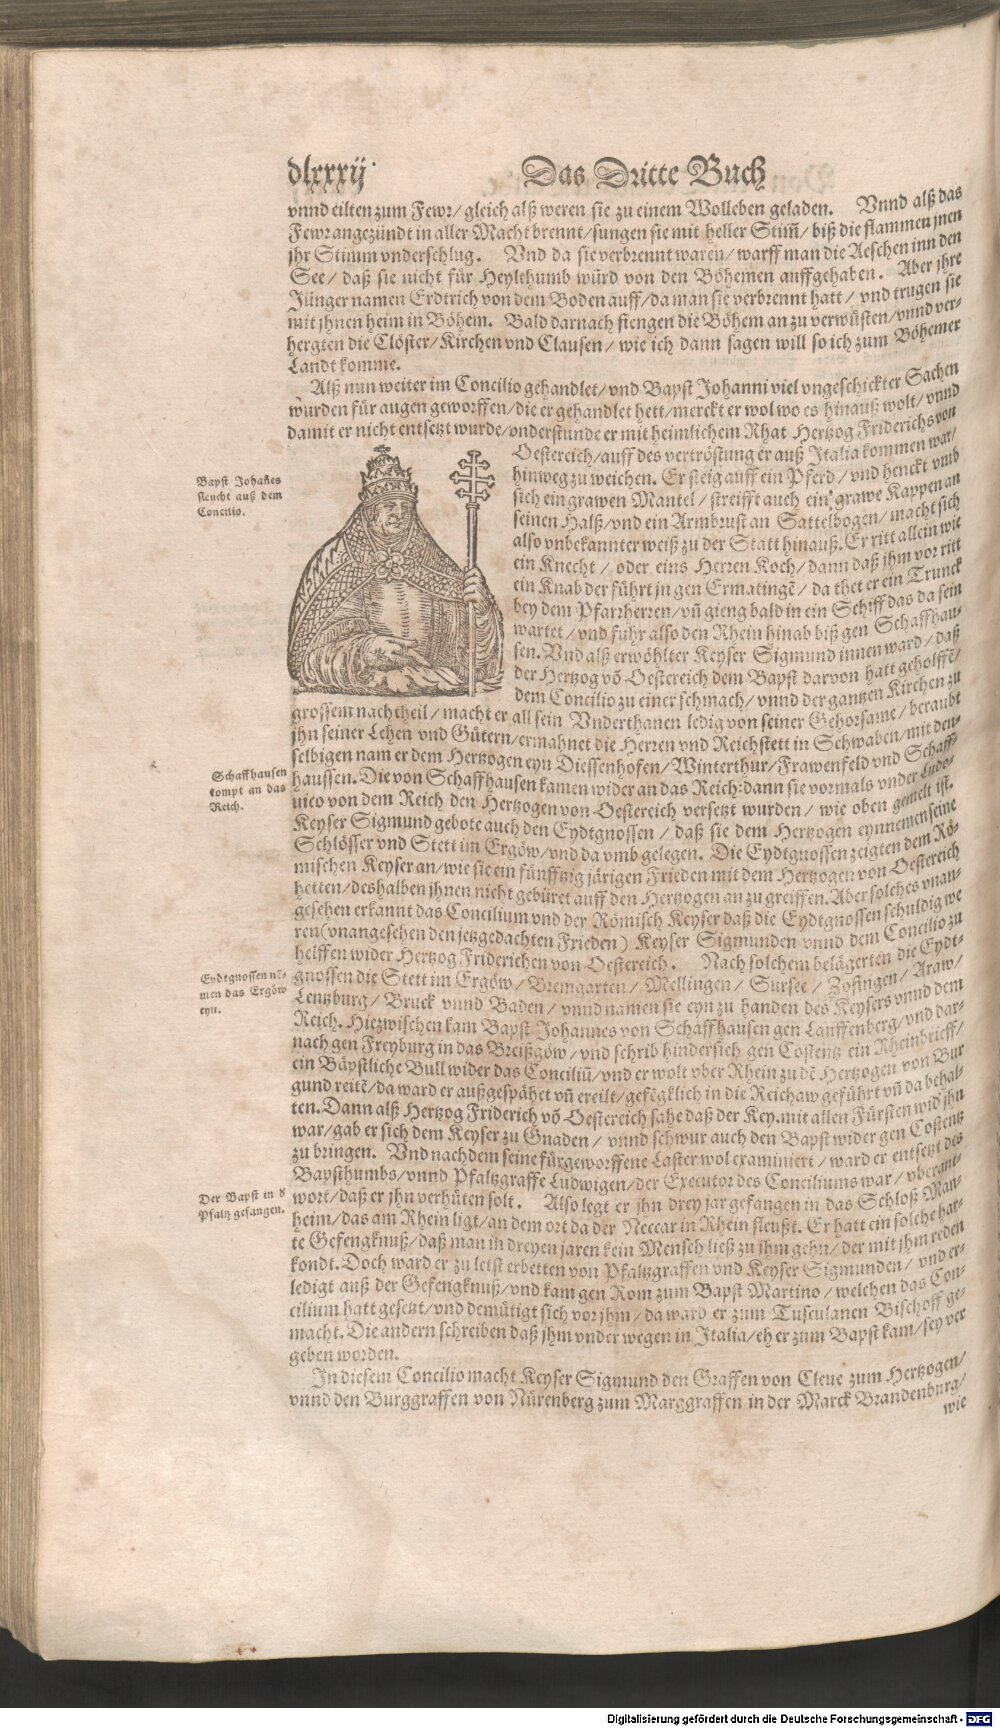 dlxxxij.
Das Dritte Buch
vnnd eilten zum Fewr/ gleich alß weren sie zu einem Wolleben geladen. Vnnd alß das
Fewr angezündt in aller Macht brennt/ sungen sie mit heller Stim̃/ biß die flammen jnen
jhr Stimm vnderschlug. Vnd da sie verbrennt waren/ warff man die Aeschen inn den
See/ daß sie nicht für Heylthumb würd von den Böhemen auffgehaben. Aber jhre
Jünger namen Erdtrich von dem Boden auff/ da man sie verbrennt hatt/ vnd trugen sie
mit jhnen heim in Böhem. Bald darnach fiengen die Böhem an zu verwüsten/ vnnd ver-
hergten die Clöster/ Kirchen vnd Clausen/ wie ich dann sagen will so ich zum Böhemer
Landt komme.
Alß nun weiter im Concilio gehandlet/ vnd Bapst Johanni viel vngeschickter Sachen
wurden für augen geworffen/ die er gehandlet hett/ merckt er wol wo es hinauß wolt/ vnnd
damit er nicht entsetzt wurde/ vnderstunde er mit heimlichem Rhat Hertzog Friderichs von
Bapst Johañes
fleucht auß dem
Concilio.
Oestereich/ auff des vertröstung er auß Italia kommen war/
hinweg zu weichen. Er steig auff ein Pferd/ vnd henckt vmb
sich ein grawen Mantel/ streifft auch ein grawe Kappen an
seinen Halß/ vnd ein Armbrust an Sattelbogen/ macht sich
also vnbekannter weiß zu der Statt hinauß. Er ritt allein wie
ein Knecht/ oder eins Herren Koch/ dann daß jhm vor ritt
ein Knab der führt jn gen Ermatingẽ/ da thet er ein Trunck
bey dem Pfarrherren/ vñ gieng bald in ein Schiff das da sein
wartet/ vnd fuhr also den Rhein hinab biß gen Schaffhau-
sen. Vnd alß erwöhlter Keyser Sigmund innen ward/ daß
der Hertzog võ Oestereich dem Bapst darvon hatt geholffẽ/
dem Concilio zu einer schmach/ vnnd der gantzen Kirchen zu
grossem nachtheil/ macht er all sein Vnderthanen ledig von seiner Gehorsame/ beraubt
jhn seiner Lehen vnd Gütern/ ermahnet die Herren vnd Reichstett in Schwaben/ mit den-
selbigen nam er dem Hertzogen eyn Diessenhofen/ Winterthur/ Frawenfeld vnd Schaff-
Schaffhausen
kompt an das
Reich.
haussen. Die von Schaffhausen kamen wider an das Reich: dann sie vormals vnder Ludo-
uico von dem Reich den Hertzogen von Oestereich versetzt wurden/ wie oben gemelt ist.
Keyser Sigmund gebote auch den Eydtgnossen/ daß sie dem Hertzogen eynnemen seine
Schlösser vnd Stett im Ergöw/ vnd da vmb gelegen. Die Eydtgnossen zeigten dem Rö-
mischen Keyser an/ wie sie ein fünfftzig järigen Frieden mit dem Hertzogen von Oestereich
hetten/ deshalben jhnen nicht gebüret auff den Hertzogen an zu greiffen. Aber solches vnan-
gesehen erkannt das Concilium vnd der Römisch Keyser daß die Eydtgnossen schuldig we
ren (vnangesehen den jetzgedachten Frieden) Keyser Sigmunden vnnd dem Concilio zu
helffen wider Hertzog Friderichen von Oestereich. Nach solchem belägerten die Eydt-
Eydtgnossen nẽ-
men das Ergöw
eyn.
gnossen die Stett im Ergöw/ Bremgarten/ Mellingen/ Sursee/ Zofingen/ Araw/
Lentzburg/ Bruck vnnd Baden/ vnnd namen sie eyn zu handen des Keysers vnnd dem
Reich. Hiezwischen kam Bapst Johannes von Schaffhausen gen Lauffenberg/ vnd dar-
nach gen Freyburg in das Breißgöw/ vnd schrib hindersich gen Costentz ein Rheinbrieff/
ein Bäpstliche Bull wider das Conciliũ/ vnd er wolt vber Rhein zu dẽ Hertzogen von Bur
gund reitẽ/ da ward er außgespähet vñ ereilt/ gefẽgklich in die Reichaw geführt vñ da behal-
ten. Dann alß Hertzog Friderich võ Oestereich sahe daß der Key. mit allen Fürsten wid jhn
war/ gab er sich dem Keyser zu Gnaden/ vnnd schwur auch den Bapst wider gen Costentz
zu bringen. Vnd nachdem seine fürgeworffene Laster wol examiniert/ ward er entsetzt des
Bapsthumbs/ vnnd Pfaltzgraffe Ludwigen/ der Executor des Conciliums war/ vberant-
Der Bapst in d
Pfaltz gefangen.
wort/ daß er jhn verhüten solt. Also legt er jhn drey jar gefangen in das Schloß Man-
heim/ das am Rhein ligt/ an dem ort da der Neccar in Rhein fleußt. Er hatt ein solche har-
te Gefengknuß/ daß man in dreyen jaren kein Mensch ließ zu jhm gehn/ der mit jhm reden
kondt. Doch ward er zu letst erbetten von Pfaltzgraffen vnd Keyser Sigmunden/ vnd er-
ledigt auß der Gefengknuß/ vnd kam gen Rom zum Bapst Martino/ welchen das Con-
cilium hatt gesetzt/ vnd demütigt sich vor jhm/ da ward er zum Tusculanen Bischoff ge-
macht. Die andern schreiben daß jhm vnder wegen in Italia/ eh er zum Bapst kam/ sey ver
geben worden.
In diesem Concilio macht Keyser Sigmund den Graffen von Cleue zum Hertzogen/
vnnd den Burggraffen von Nürenberg zum Marggraffen in der Marck Brandenburg/
wie
Digitalisierung gefördert durch die Deutsche Forschungsgemeinschaft - DFG